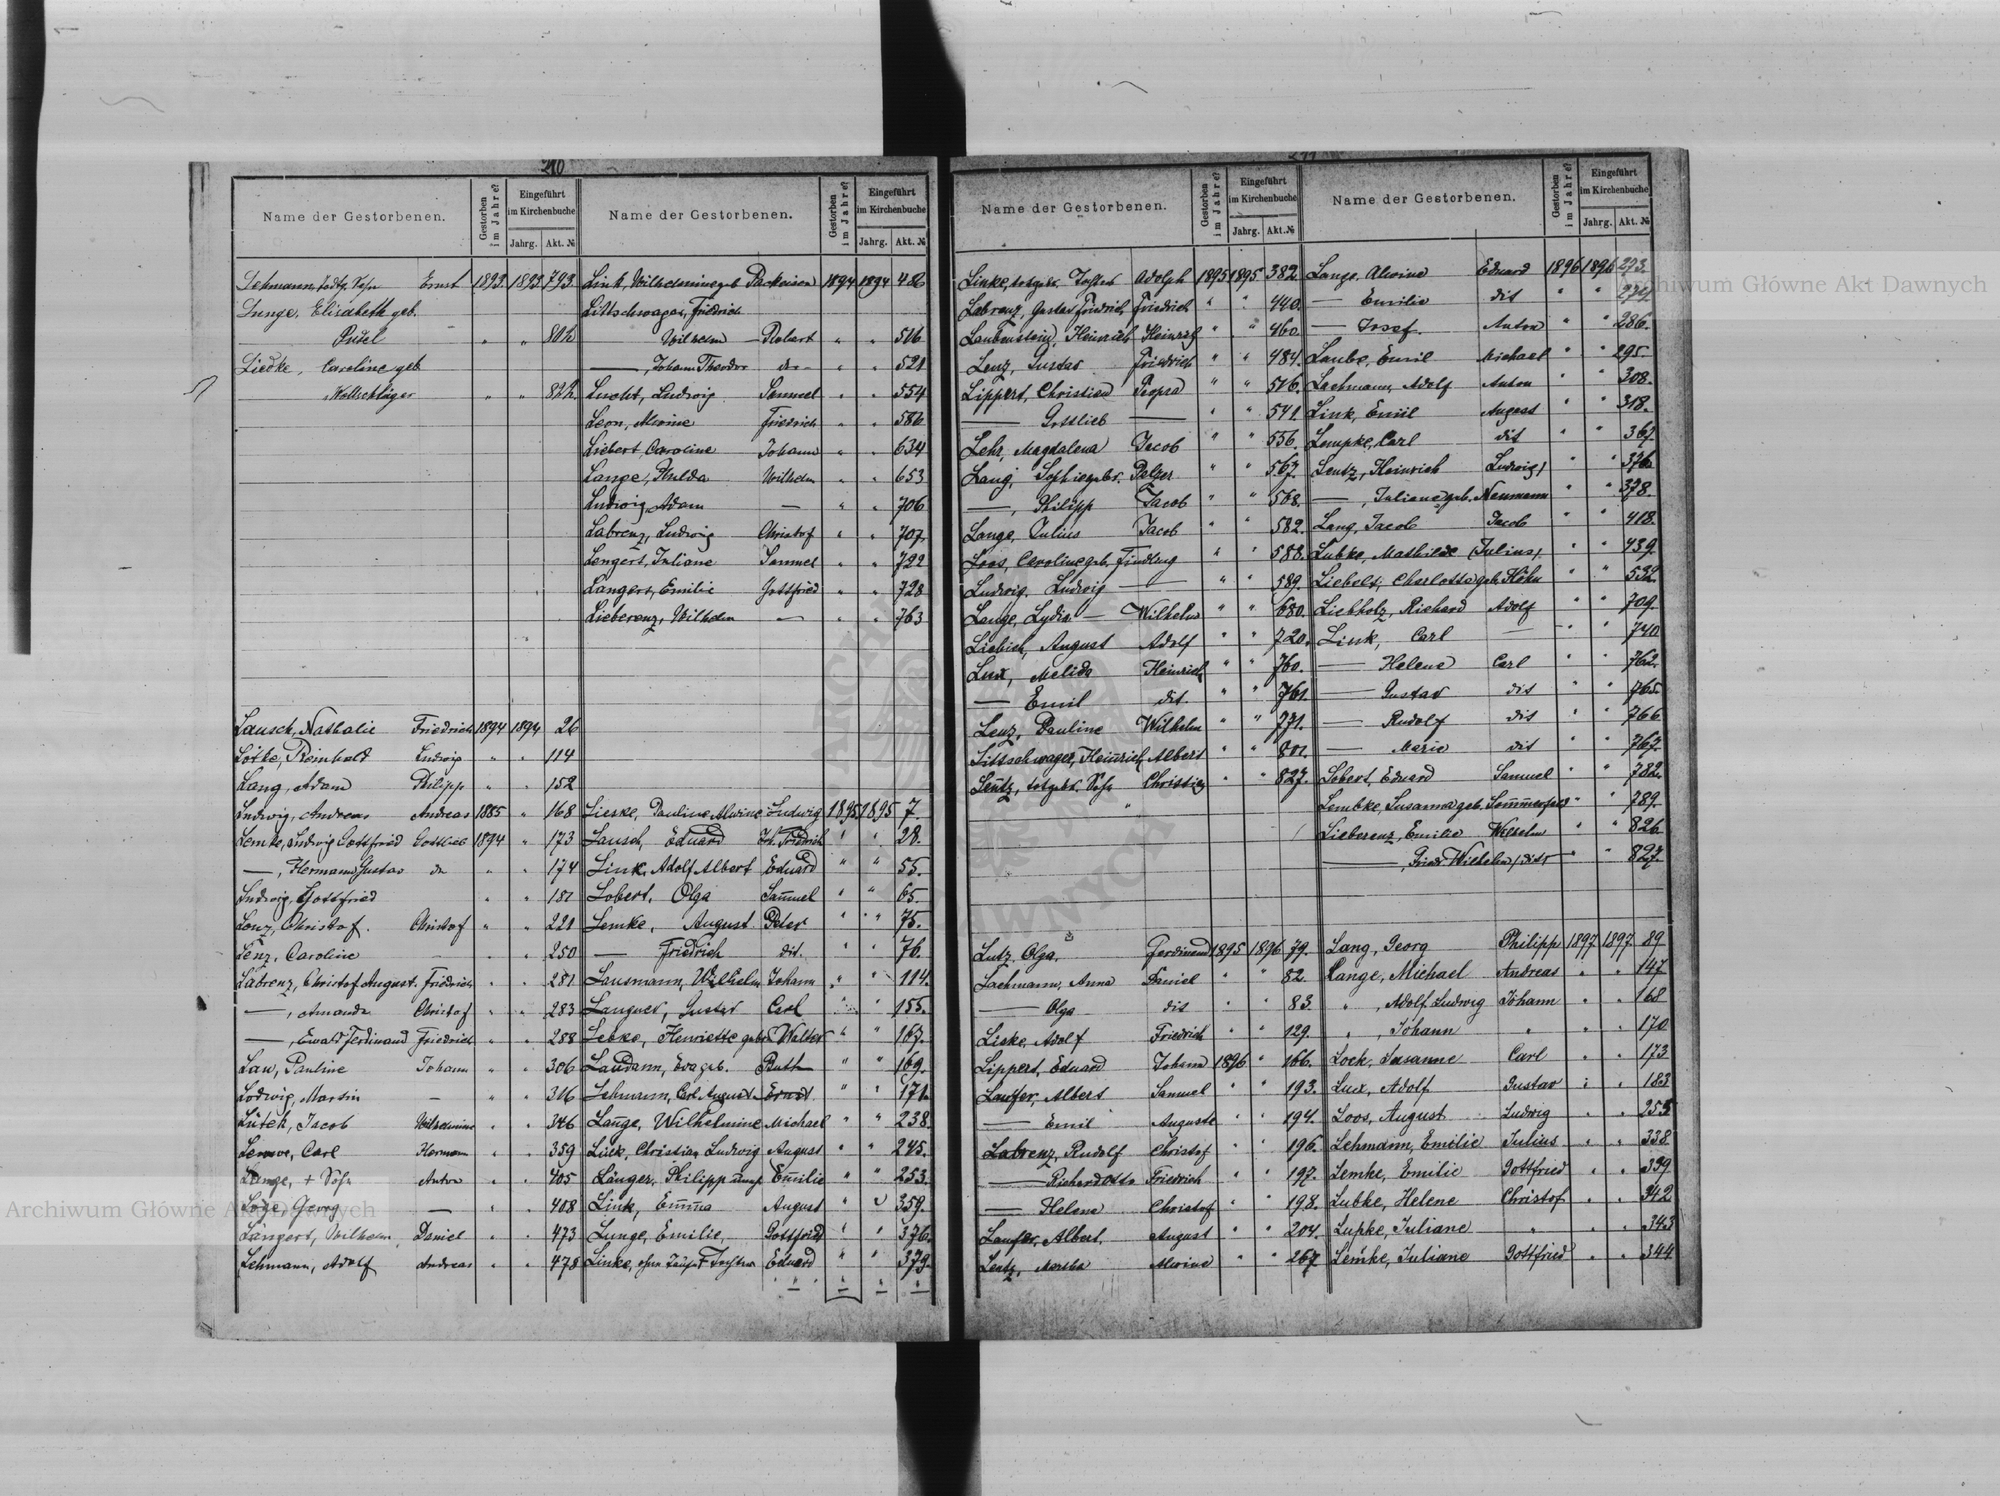 210
Name der Gestorbenen.
Gestorben im Jahre?
Eingeführt im Kirchenbuche
Jahrg. Akt. №
Lehmann, todtg. Sohn Ernst 1893 1893 793
Lunge, Elisabeth geb.
Pudel " " 802
Liedke, Caroline geb
Wollschläger " " 822
Lausch, Nathalie Friedrich 1894 1894 26
Lötke, Reinhold Ludwig " " 114
Lang, Adam Philipp " " 152
Ludwig, Andreas Andreas 1885 " 168
Lemke, Ludwig Gottfried Gottlieb 1894 " 173
—, Hermann Gustav do " " 174
Ludwig, Gottfried " " 181
Lenz, Christof. Christof " " 221
Lenz, Caroline — " " 250
Labrenz, Christof August. Friedrich " " 281
—, Amanda Christof " " 283
—, Ewald Ferdinand Friedrich " " 288
Lau, Pauline Johann " " 306
Lodwig, Martin — " " 316
Lütek, Jacob Wilhelmine " " 346
Carl Hermann " " 359
Lange, + Sohn Anton " " 405
Löge, Georg — " " 408
Längert, Wilhelm, Daniel " " 473
Lehmann, Adolf Andreas " " 478
Name der Gestorbenen.
Gestorben im Jahre?
Eingeführt im Kirchenbuche
Jahrg. Akt. №
Link, Wilhelmine geb 1894 1894
Littschwager, Friedrich
Wilhelm Robert " " 506
—, Johann Theodor do " " 521
Lucht, Ludwig Samuel " " 554
Leon, Alwine Friedrich " " 586
Liebert, Caroline Johann " " 634
Lange, Hulda Wilhelm " " 653
Ludwig, Adam — " " 706
Labrenz, Ludwig Christof " " 707
Lengert, Juliane Samuel " " 722
Langert, Emilie Gottfried " " 728
Lieberenz, Wilhelm — " " 763
Lieske, Pauline Alwine Ludwig 1895 1895 7.
Lausch, Eduard Friedrich " " 28.
Link, Adolf Albert Eduard " " 55.
Lobert, Olga Samuel " " 65.
Lemke, August Peter " " 75.
— Friedrich dit. " " 76.
Lausmann, Wilhelm Johann " " 114.
Languer, Gustav Carl " " 155.
Lebke, Henriette geb. Walter " " 167.
Laudann, Eva geb. Buth " " 169.
Lehmann, Carl August Ernst " " 171.
Lange, Wilhelmine Michael " " 238.
Link, Christian Ludwig August " " 245.
Länger, Philipp Emilie " " 253.
Link, Emma August " " 359.
Lunge, Emilie, Gottfried " " 376.
Linke, ohne Taufe + Tochter Eduard " " 379.
Name der Gestorbenen.
Gestorben im Jahre?
Eingeführt im Kirchenbuche
Jahrg. Akt. №
Linke, totgeb. Tochter Adolph 1895 1895 382
Labrenz, Gustav Friedrich Friedrich " " 440.
Laubenstein, Heinrich Heinrich " " 460.
Lenz, Gustav Friedrich " " 484.
Lippert, Christian " " 516.
— Gottlieb — " " 541.
Lehr, Magdalena Jacob " " 556.
Lang, Sophie geb. Pelzer " " 567.
—, Philipp Jacob " " 568.
Lange, Julius Jacob " " 582.
Loos, Caroline geb. Findling " " 588.
Ludwig, Ludwig — " " 589.
Lange, Lydia — Wilhelm " " 680.
Liebich, August Adolf " " 720.
Lux, Melida Heinrich " " 760.
— Emil dit. " " 761.
Lenz, Pauline Wilhelm " " 771.
Littschwager, Heinrich Albert " " 801.
Lentz, totgeb. Sohn Christian " " 827.
Lutz, Olga, Ferdinand 1895 1896 79.
Lachmann, Anna Daniel " " 82.
— Olga dit " " 83.
Liske, Adolf Friedrich " " 129.
Lippert, Eduard Johann 1896 " 166.
Laufer, Albert Samuel " " 193.
— Emil Auguste " " 194.
Labrenz, Rudolf Christof " " 196.
— Richard Otto Friedrich " " 197.
— Helene Christof " " 198.
Laufer, Albert. August " " 204.
Lentz, Martha Alwine " " 267.
Name der Gestorbenen.
Gestorben im Jahre?
Eingeführt im Kirchenbuche
Jahrg. Akt. №
Lange, Alwine Eduard 1896 1896 273.
— Emilie dit " " 274.
— Josef Anton " " 286.
Laube, Emil Michael " " 295.
Lachmann, Adolf Anton " " 308.
Link, Emil August " " 318.
Lempke, Carl dit " " 367.
Lentz, Heinrich Ludwig " " 376.
—, Juliane geb. Neumann " " 378.
Lang, Jacob Jacob " " 418.
Lubke, Mathilde (Julius) " " 439.
Liebelt, Charlotte geb. Höhn " " 532.
Liebholz, Richard Adolf " " 709.
Link, Carl — " " 740
— Helene Carl " " 762.
— Gustav dit " " 765.
— Rudolf dit " " 766
— Marie dit " " 767.
Lobert, Eduard Samuel " " 782.
Lembke, Susanna geb. Sommerfeld " " 789.
Lieberenz, Emilie Wilhelm " " 826
—, Fried. Wilhelm, dit " " 827.
Lang, Georg Philipp 1897 1897 89
Lange, Michael Andreas " " 147
", Adolf Ludwig Johann " " 168
", Johann " " " 170
Lock, Susanne Carl " " 173
Lux, Adolf Gustav " " 183
Loos, August Ludwig " " 255
Lehmann, Emilie Julius " " 338
Lemke, Emilie Gottfried " " 339
Lubke, Helene Christof " " 342
Lupke, Juliane " " " 343
Lemke, Juliane Gottfried " " 344
Archiwum Główne Akt Dawnych
Archiwum Główne Akt Dawnych